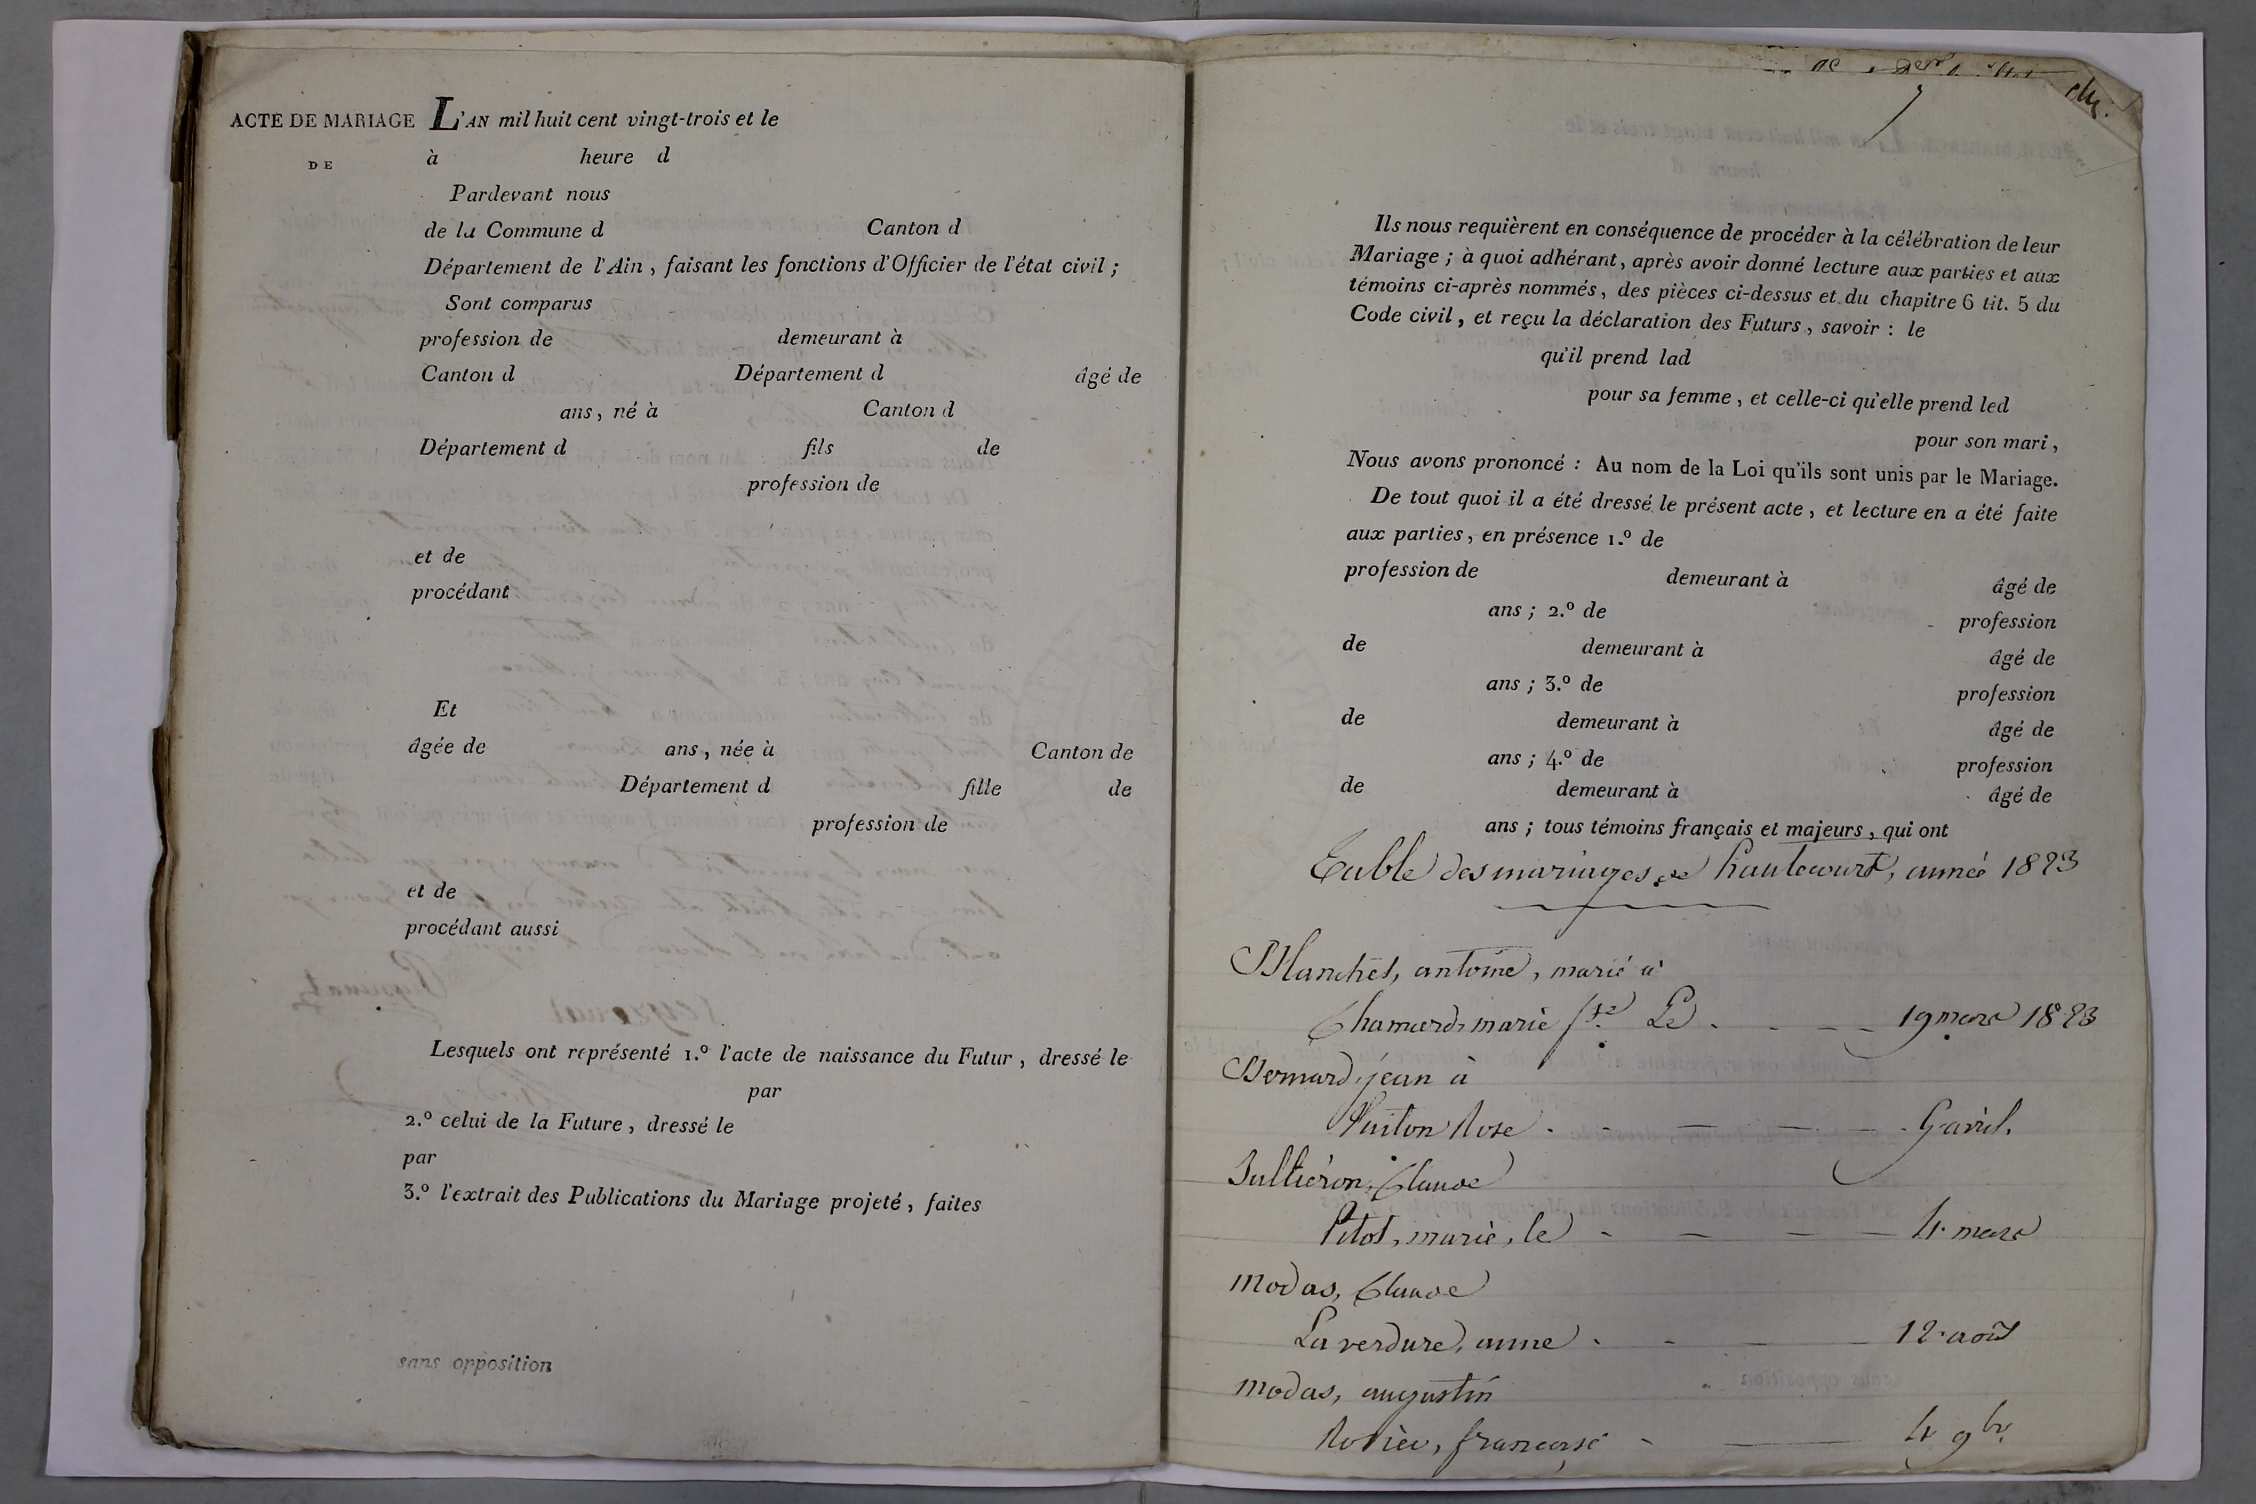 ACTE DE MARIAGE L'AN mil huit cent vingt-trois et le
DE à heure d
Pardevant nous
de la Commune d Canton d
Département de l'Ain, faisant les fonctions d'Officier de l'état civil ;
Sont comparus
profession de demeurant à
Canton d Département d âgé de
ans, né à Canton d
Département d fils de
profession de
et de
procédant
Et
âgée de ans, née à Canton de
Département d fille de
profession de
et de
procédant aussi
Lesquels ont représenté 1.º l'acte de naissance du Futur, dressé le
par
2.º celui de la Future, dressé le
par
3.º l'extrait des Publications du Mariage projeté, faites
sans opposition
Ils nous requièrent en conséquence de procéder à la célébration de leur
Mariage ; à quoi adhérant, après avoir donné lecture aux parties et aux
témoins ci-après nommés, des pièces ci-dessus et du chapitre 6 tit. 5 du
Code civil, et reçu la déclaration des Futurs, savoir : le
qu'il prend lad
pour sa femme, et celle-ci qu'elle prend led
pour son mari,
Nous avons prononcé : Au nom de la Loi qu'ils sont unis par le Mariage.
De tout quoi il a été dressé le présent acte, et lecture en a été faite
aux parties, en présence 1.º de
profession de demeurant à âgé de
ans ; 2.º de profession
de demeurant à âgé de
ans ; 3.º de profession
de demeurant à âgé de
ans ; 4.º de profession
de demeurant à âgé de
ans ; tous témoins français et majeurs, qui ont
Table des mariages de hautecourt, année 1823
Blanchet, antoine, marié à
Chamard, marie f.se Le 19 mars 1823
Bernard, jean à
Puiton Rose 9 avril.
Jullieron, Claude
Pitot, marie, le 4 mars
modas, Claude
La verdure, anne 12 août
modas, augustin
françoise 4 9bre